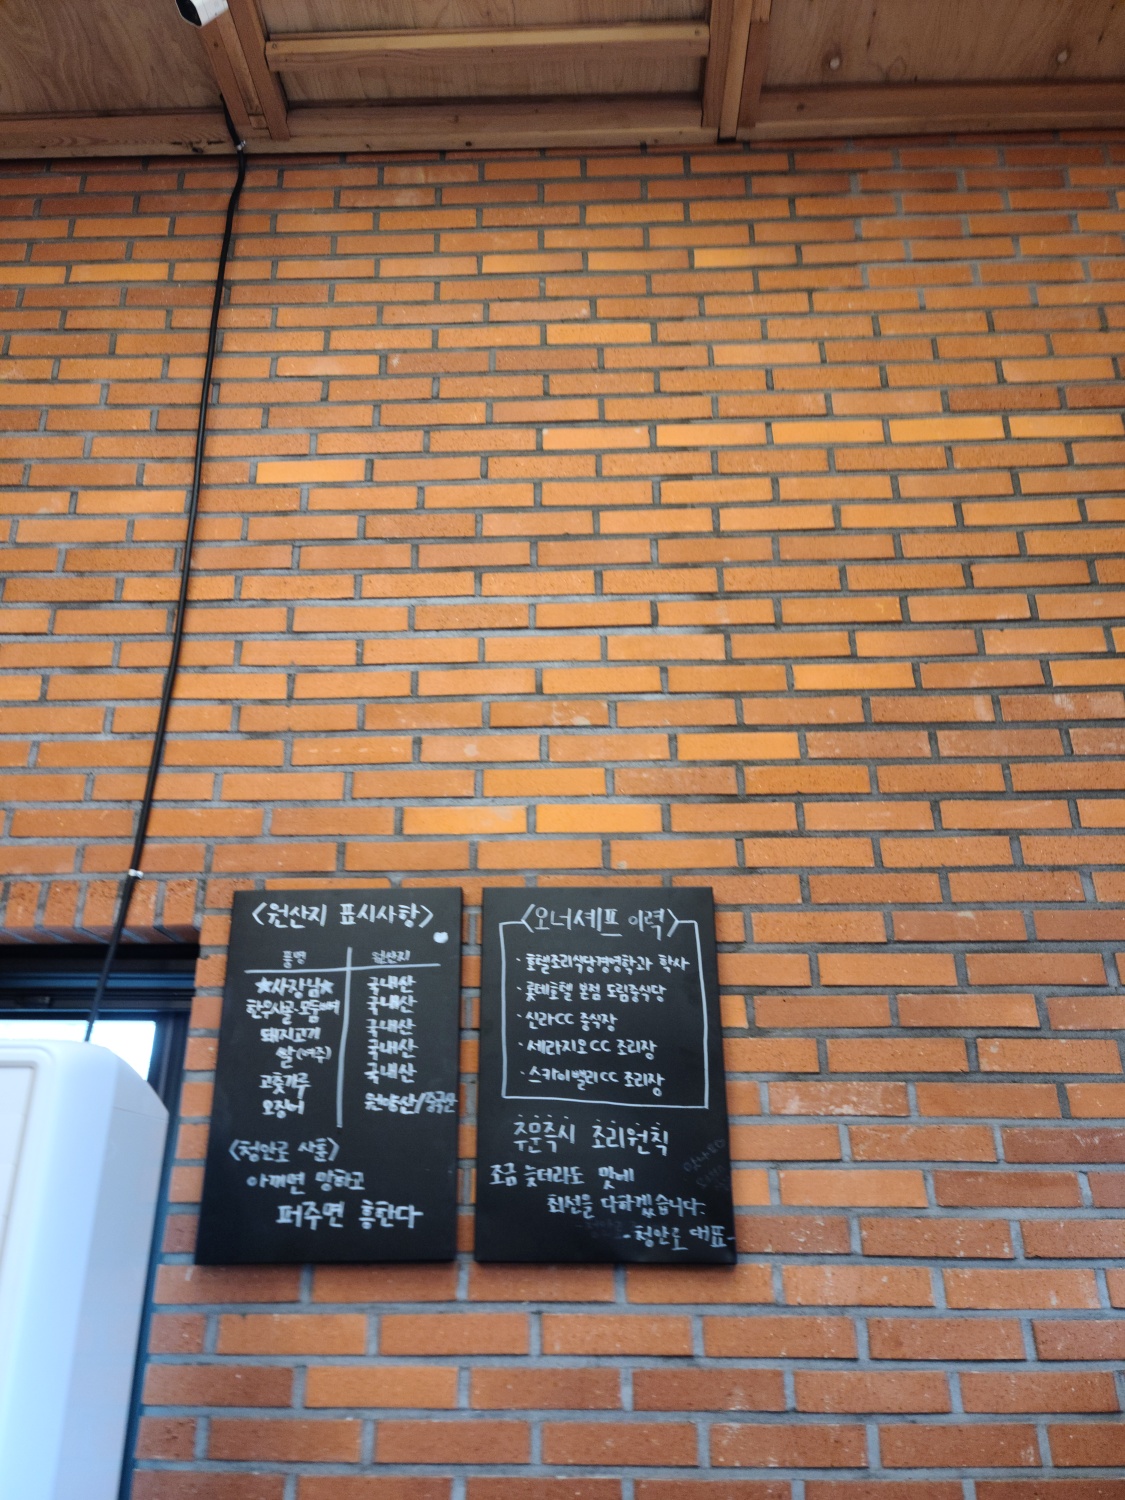 <원산지 표시사항>
품명 원산지
★사장님★ 국내산
한우사골·모둠뼈 국내산
돼지고기 국내산
쌀(여주) 국내산
고춧가루 국내산
오징어 원양산/중국산
<청안로 사훈>
아끼면 망하고
퍼주면 흥한다
<오너셰프 이력>
· 호텔조리식당경영학과 학사
· 롯데호텔 본점 도림중식당
· 신라CC 중식장
· 세라지오CC 조리장
· 스카이밸리CC 조리장
주문즉시 조리원칙
조금 늦더라도 맛에
최선을 다하겠습니다.
-청안로 대표-